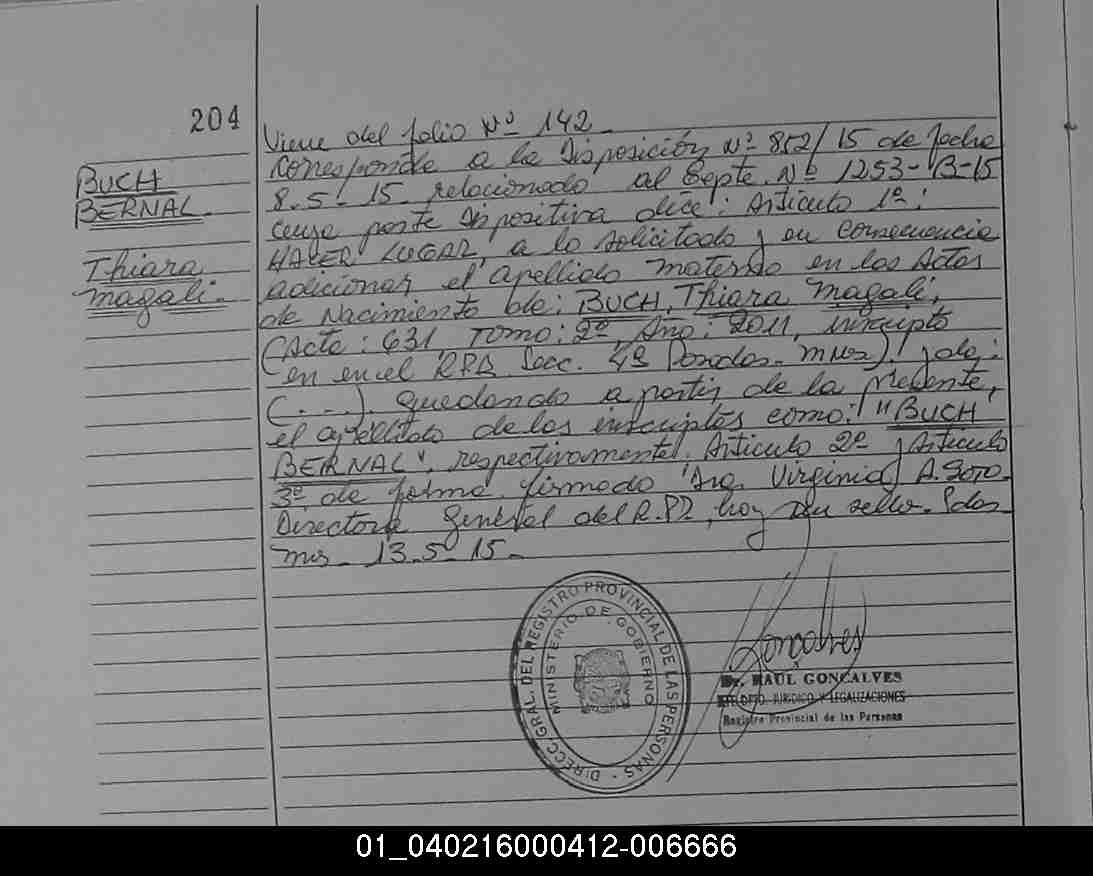 204
BUCH
BERNAL.
Thiara
Magali.
Viene del folio Nº 142_
Corresponde a la Disposición Nº 852/15 de fecha
8.5-15. relacionado al Expte. Nº 1253-13-15
cuya parte dispositiva dice: Artículo 1º:
HACER LUGAR, a lo solicitado y en consecuencia
adicionar el apellido materno en las Actas
de Nacimiento de: BUCH, Thiara Magali,
(Acta: 631 Tomo: 2º, Año: 2011, inscripto
en en el RPP. Secc. 4º Posadas. Mnes). y de:
(...). quedando a partir de la presente,
el apellido de los inscriptos como: "BUCH
BERNAL", respectivamente. Artículo 2º y Artículo
3º de forma. firmado Virginia A.
Directora General del R.PP., hay un sello. Pdas
Mnes. 13.5-15_
DIRECC GRAL. DEL REGISTRO PROVINCIAL DE LAS PERSONAS -
MINISTERIO DE GOBIERNO
Goncalves
Dr. RAUL GONCALVES
JEFE DPTO. JURIDICO Y LEGALIZACIONES
Registro Provincial de las Personas
01_040216000412-006666